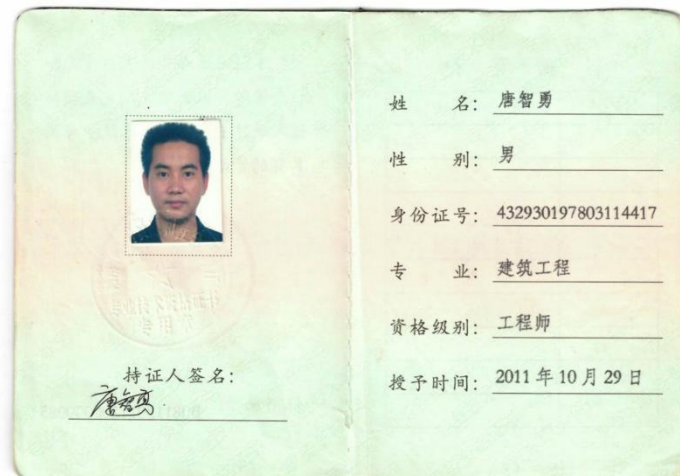 持证人签名：
唐智勇
姓 名： 唐智勇
性 别： 男
身份证号： 432930197803114417
专 业： 建筑工程
资格级别： 工程师
授予时间： 2011年10月29日